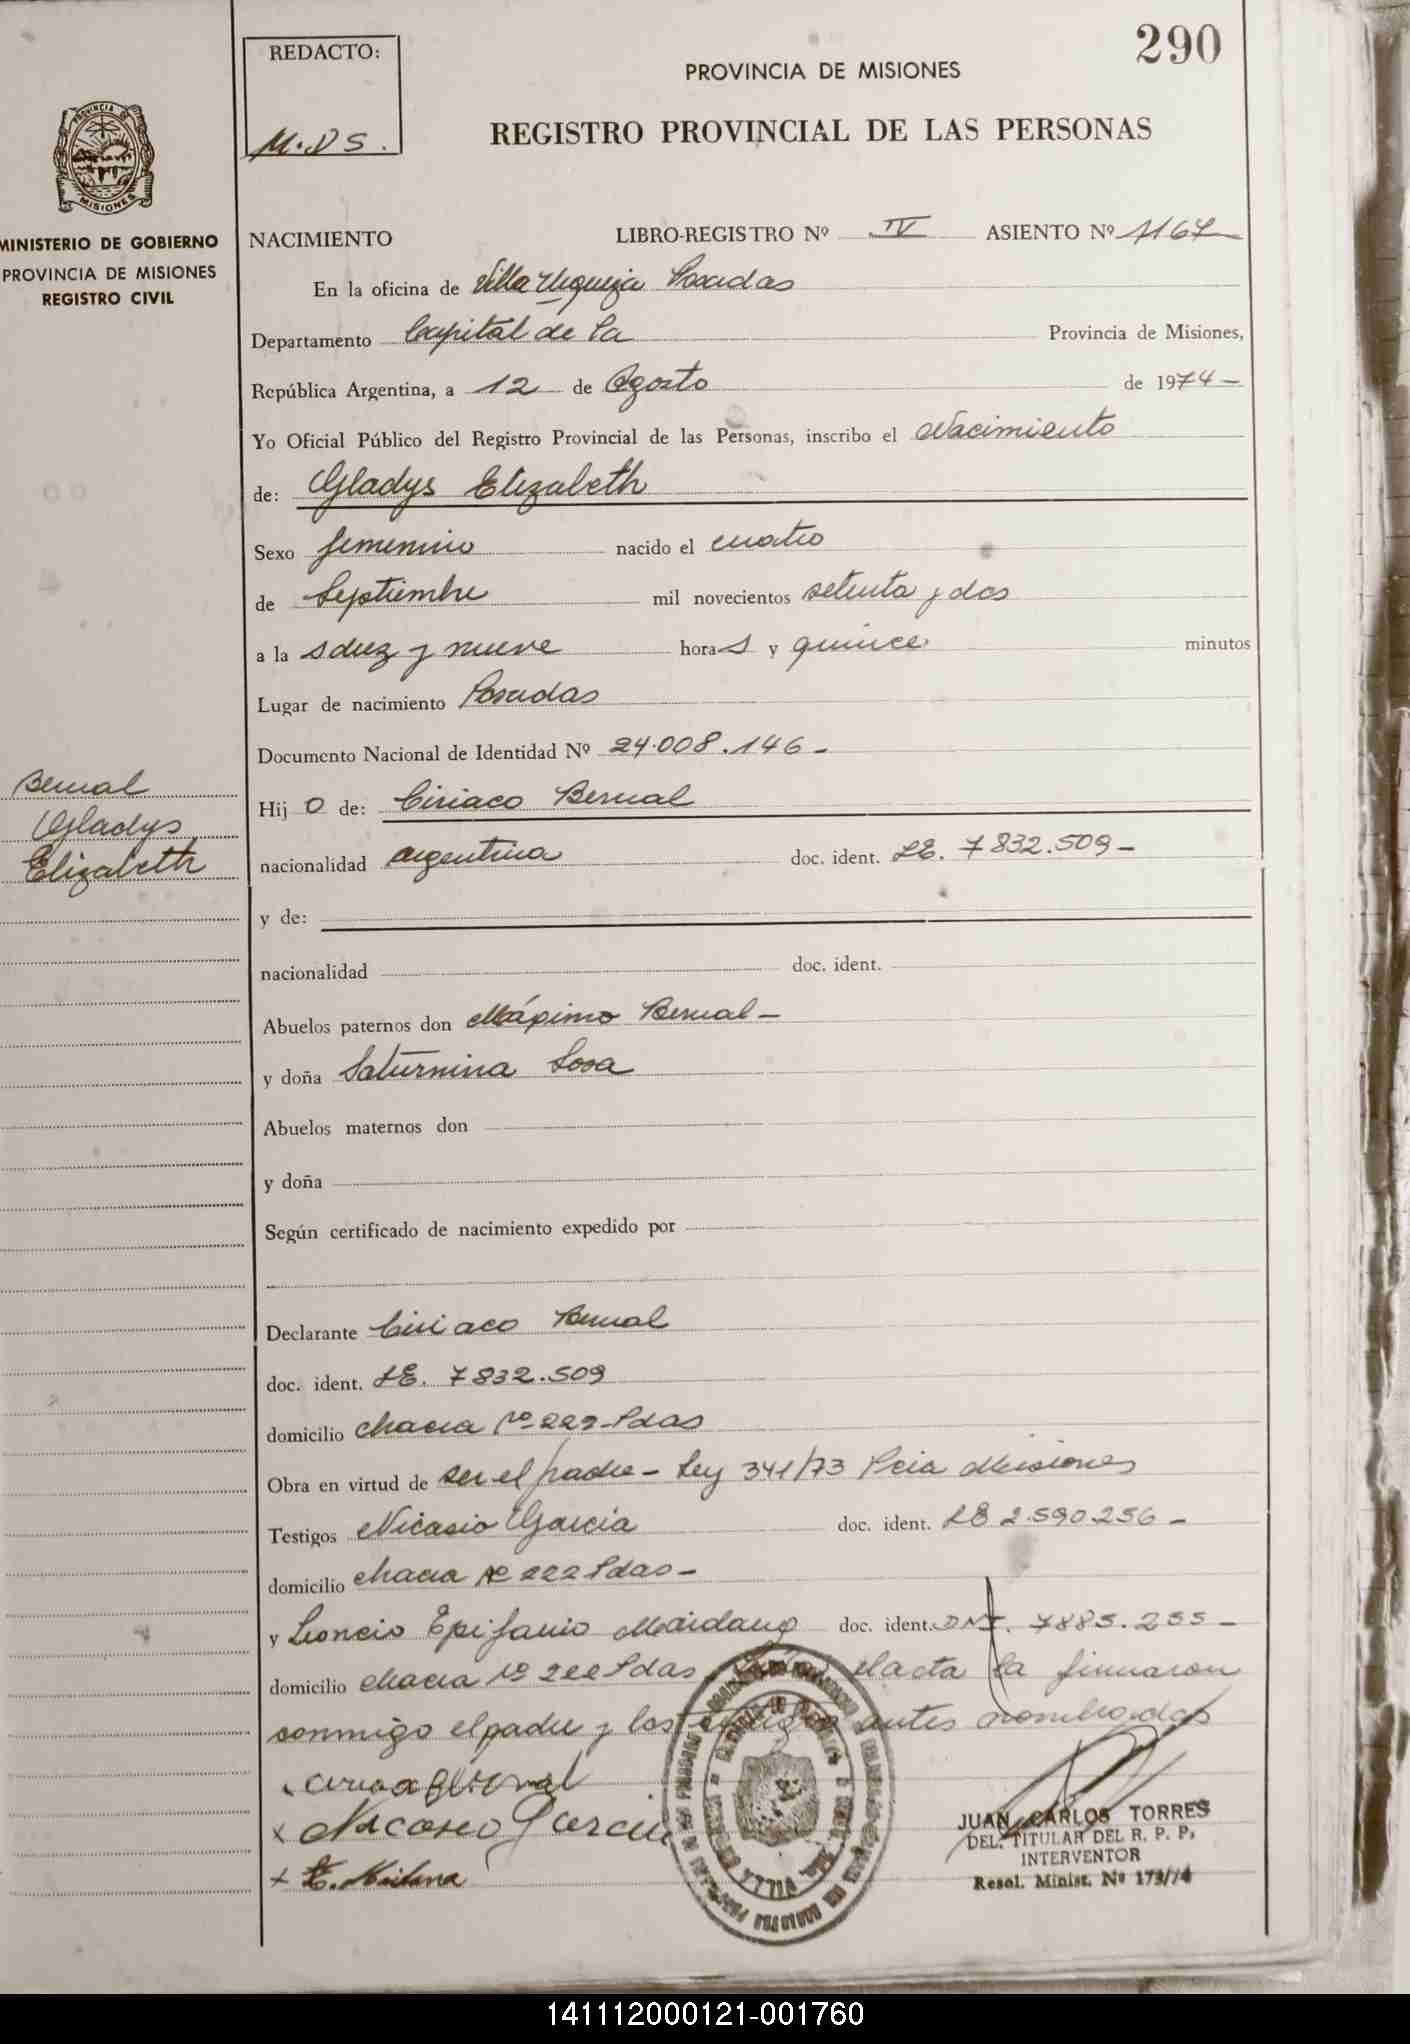 290
REDACTO:
M.DS.
PROVINCIA DE MISIONES
REGISTRO PROVINCIAL DE LAS PERSONAS
PROVINCIA DE
MISIONES
MINISTERIO DE GOBIERNO
PROVINCIA DE MISIONES
REGISTRO CIVIL
NACIMIENTO LIBRO-REGISTRO Nº IV ASIENTO Nº 1167
En la oficina de Villa Urquiza Posadas
Departamento Capital de la Provincia de Misiones,
República Argentina, a 12 de Agosto de 1974-
Yo Oficial Público del Registro Provincial de las Personas, inscribo el Nacimiento
de: Gladys Elizabeth
Sexo femenino nacido el cuatro
de Septiembre mil novecientos setenta y dos
a la s diez y nueve hora s y quince minutos
Lugar de nacimiento Posadas
Documento Nacional de Identidad Nº 24.008.146-
Bernal
Gladys
Elizabeth
Hij o de: Ciriaco Bernal
nacionalidad argentina doc. ident. LE. 7832.509-
y de:
nacionalidad doc. ident.
Abuelos paternos don Máximo Bernal-
y doña Saturnina Sosa
Abuelos maternos don
y doña
Según certificado de nacimiento expedido por
Declarante Ciriaco Bernal
doc. ident. LE. 7832.509
domicilio chacra Nº 222 Pdas
Obra en virtud de ser el padre - Ley 341/73 Pcia Misiones
Testigos Nicasio Garcia doc. ident. LE 2.590.256-
domicilio chacra Nº 222 Pdas-
y Leoncio Epifanio Maidana doc. ident. DNI. 7885.255-
domicilio chacra Nº 222 Pdas. el acta la firmaron
conmigo el padre y los testigos antes nombrados
x Nicasio Garcia
+ E. Maidana
VILLA
JUAN CARLOS TORRES
DEL. TITULAR DEL R. P. P.
INTERVENTOR
Resol. Minist. Nº 173/74
141112000121-001760